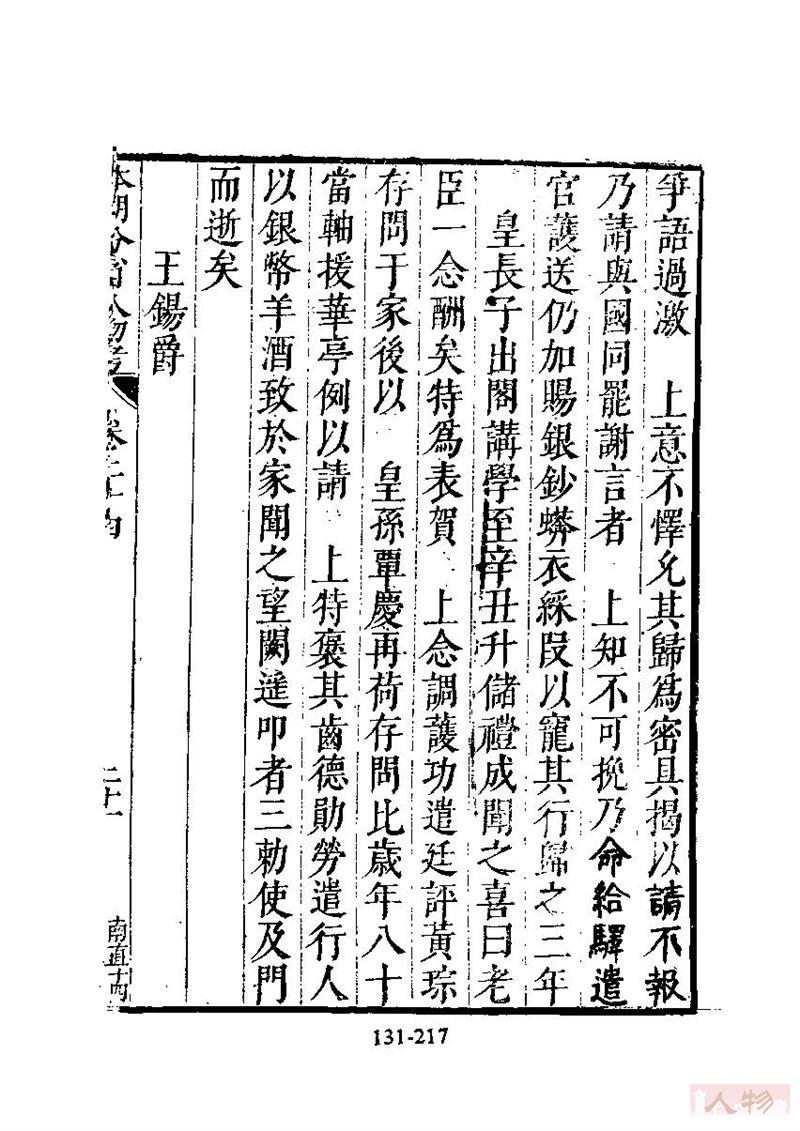 爭語過激　上意不懌允其歸爲密具揭以請不報
乃請與國同罷謝言者　上知不可挽乃命給驛遣
官護送仍加賜銀鈔蟒衣綵叚以寵其行歸之三年
皇長子出閣講學至辛丑升儲禮成聞之喜曰老
臣一念酬矣特爲表賀　上念調護功遣廷評黃琮
存問于家後以　皇孫覃慶再荷存問比歲年八十
當軸援華亭例以請　上特褒其齒德勛勞遣行人
以銀幣羊酒致於家聞之望闕遥叩者三勅使及門
而逝矣
王錫爵
本朝分省人物考
卷之二十四
二十一
南直十四
131-217
人物